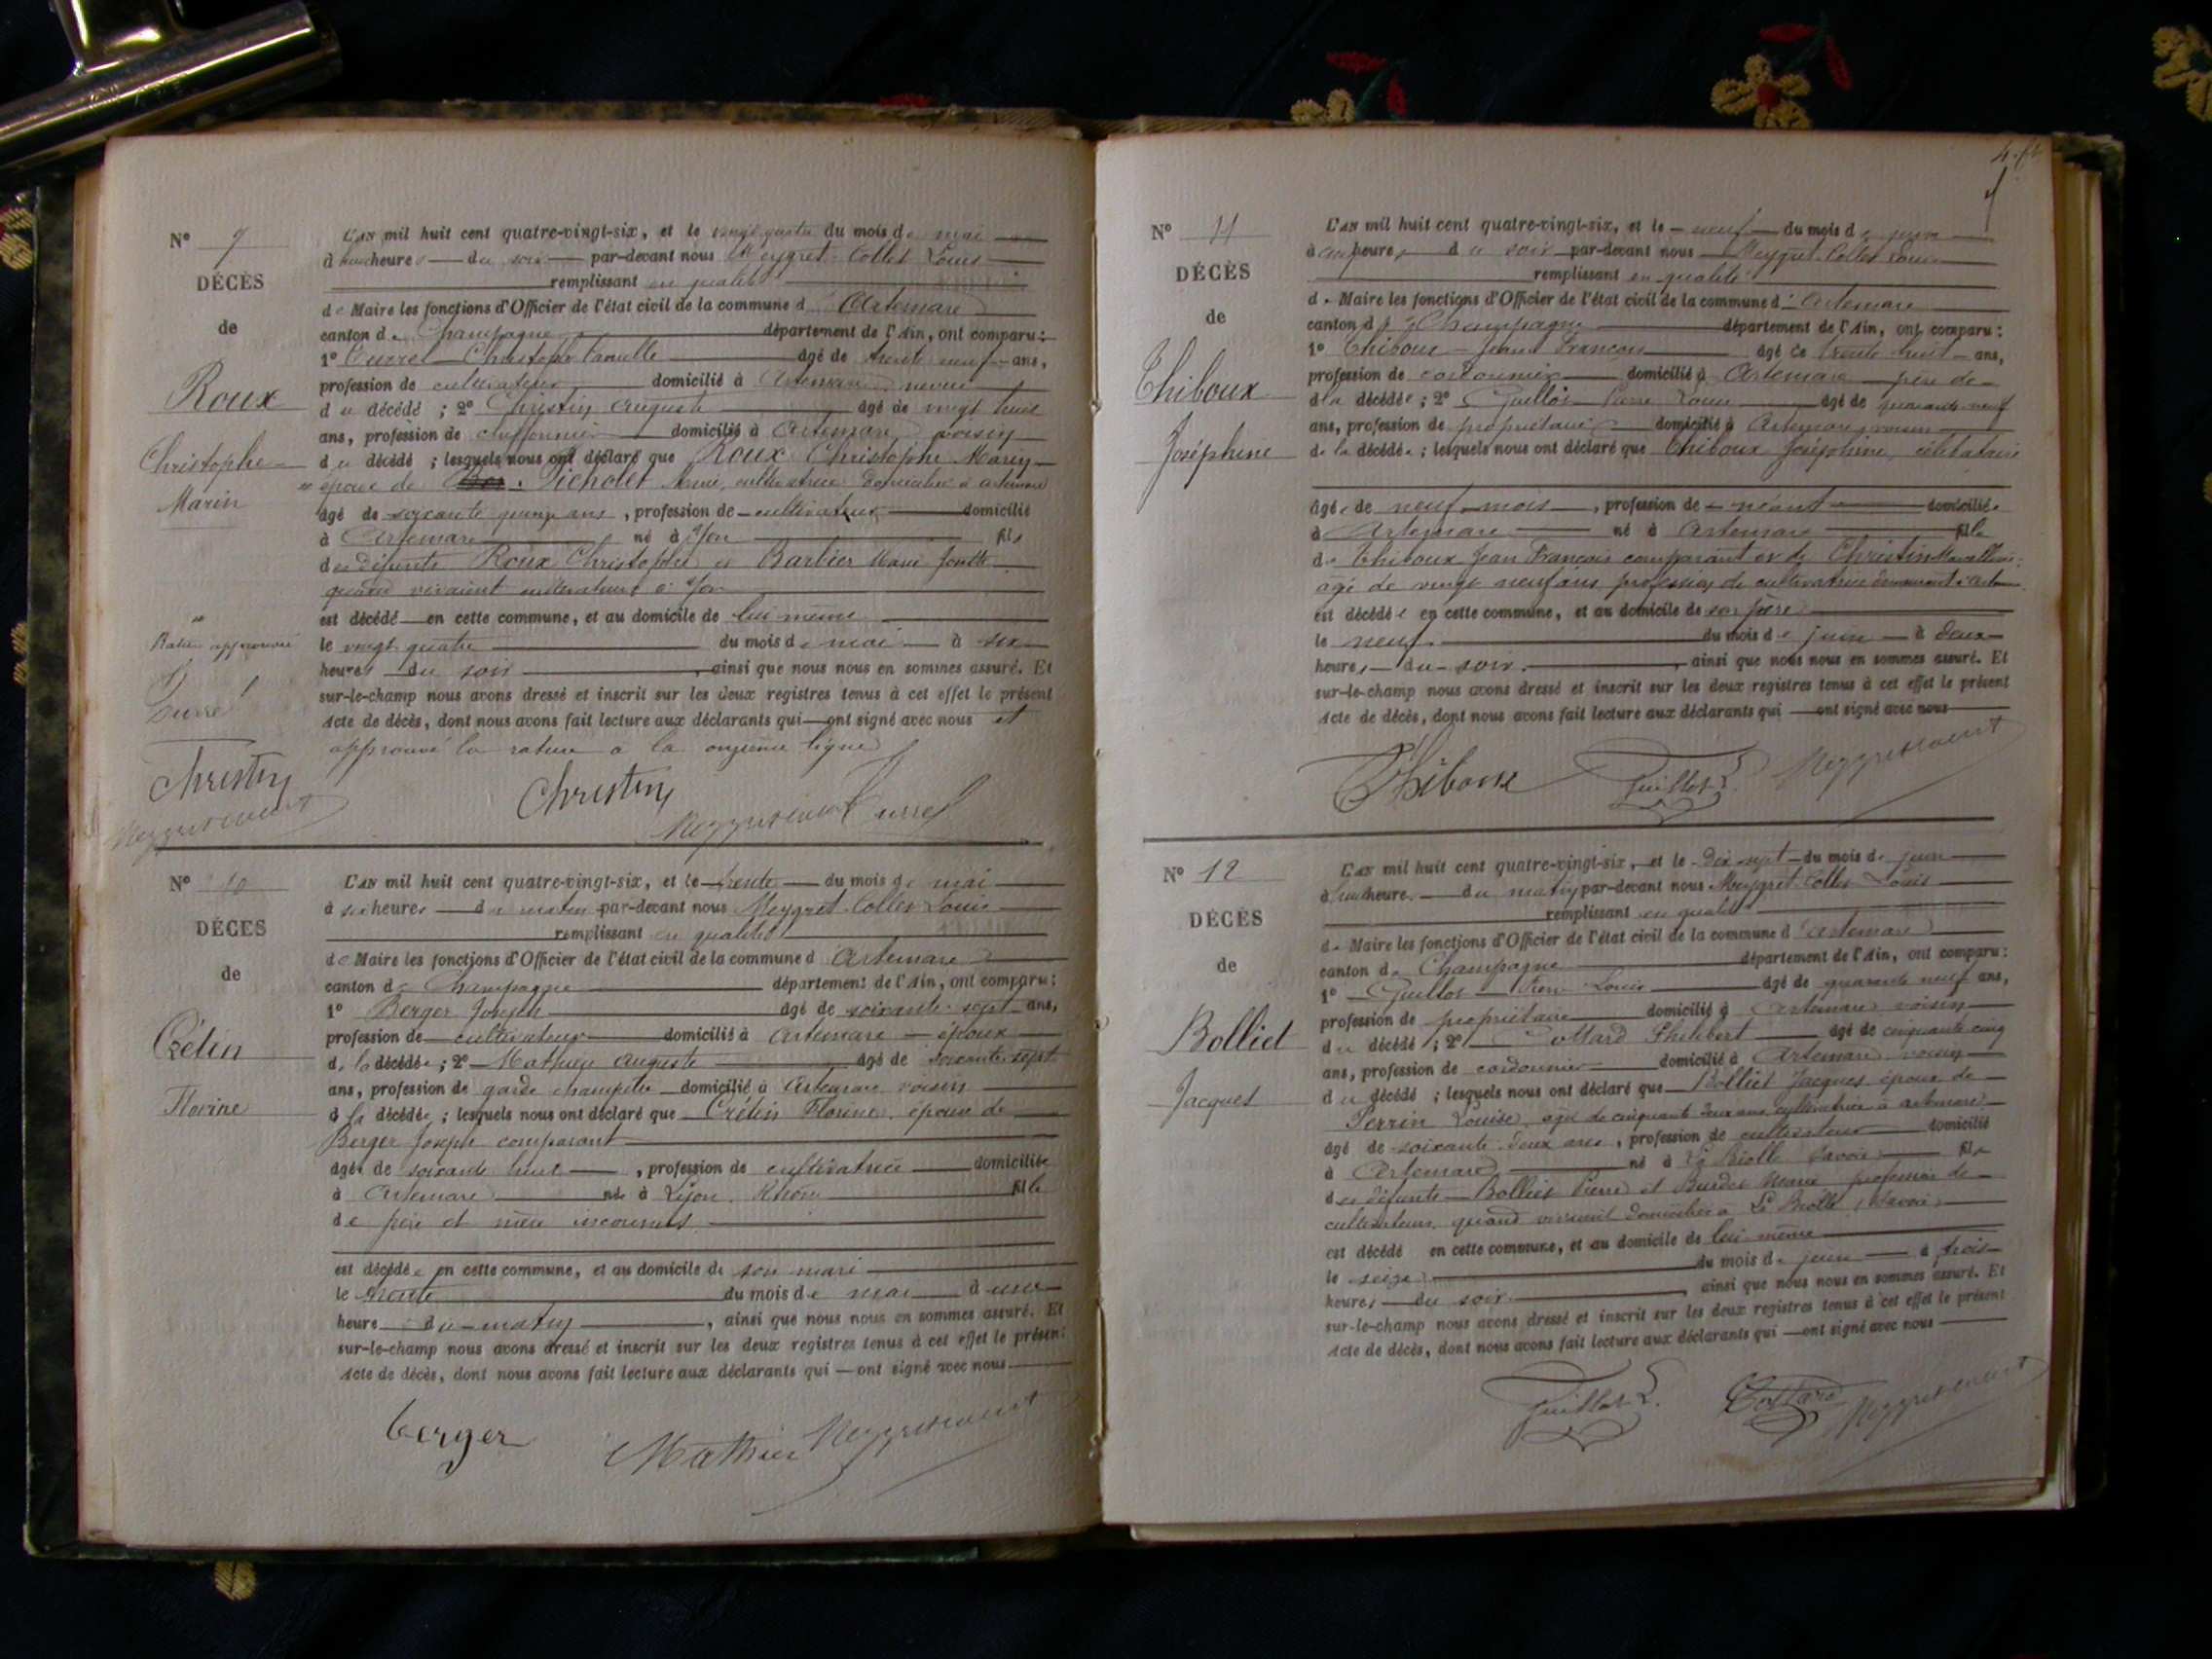 N° 9
DÉCÈS
de
Roux
Christophe
Marin
L'AN mil huit cent quatre-vingt-six, et le vingt quatre du mois de mai
à heures du soir par-devant nous Meygret-Collet Louis
remplissant en qualité
de Maire les fonctions d'Officier de l'état civil de la commune d'Artemare
canton de Champagne département de l'Ain, ont comparu :
1° Christophe Camille âgé de trente neuf ans,
profession de cultivateur domicilié à Artemare neveu
du décédé ; 2° Christin Auguste âgé de vingt huit
ans, profession de domicilié à Artemare voisin
du décédé ; lesquels nous ont déclaré que Roux Christophe Marin
époux de Pichollet cultivatrice domiciliée à artemare
âgé de soixante quinze ans, profession de cultivateur domicilié
à Artemare né à Yon fils
des défunts Roux Christophe et Barbier Marie
quand vivaient cultivateurs à Yon
est décédé en cette commune, et au domicile de lui même
le vingt quatre du mois de mai à six
heures du soir, ainsi que nous nous en sommes assuré. Et
sur-le-champ nous avons dressé et inscrit sur les deux registres tenus à cet effet le présent
Acte de décès, dont nous avons fait lecture aux déclarants qui ont signé avec nous et
approuvé la rature a la onzième ligne
Rature approuvée
Christin
Christin
N° 10
DÉCÈS
de
Crétin
Florine
L'AN mil huit cent quatre-vingt-six, et le trente du mois de mai
à six heures du matin par-devant nous Meygret-Collet Louis
remplissant en qualité
de Maire les fonctions d'Officier de l'état civil de la commune d'Artemare
canton de Champagne département de l'Ain, ont comparu :
1° Berger Joseph âgé de soixante sept ans,
profession de cultivateur domicilié à Artemare époux
de la décédée ; 2° Mathieu Auguste âgé de soixante sept
ans, profession de garde champêtre domicilié à Artemare voisin
de la décédée ; lesquels nous ont déclaré que Crétin Florine épouse de
Berger Joseph comparant
âgée de soixante huit, profession de cultivatrice domiciliée
à Artemare née à Lyon Rhône fille
de père et mère inconnus
est décédée en cette commune, et au domicile de son mari
le trente du mois de mai à une
heure du matin, ainsi que nous nous en sommes assuré. Et
sur-le-champ nous avons dressé et inscrit sur les deux registres tenus à cet effet le présent
Acte de décès, dont nous avons fait lecture aux déclarants qui ont signé avec nous
berger Mathieu
N° 11
DÉCÈS
de
Thiboux
Joséphine
L'AN mil huit cent quatre-vingt-six, et le neuf du mois de juin
à heures du soir par-devant nous Meygret-Collet Louis
remplissant en qualité
de Maire les fonctions d'Officier de l'état civil de la commune d'Artemare
canton de Champagne département de l'Ain, ont comparu :
1° Thiboux Jean François âgé de trente huit ans,
profession de cordonnier domicilié à Artemare père de
de la décédée ; 2° Guillot Pierre Louis âgé de quarante neuf
ans, profession de propriétaire domicilié à Artemare voisin
de la décédée ; lesquels nous ont déclaré que Thiboux Joséphine, célibataire
âgée de neuf mois, profession de néant domiciliée
à Artemare né à Artemare fille
de Thiboux Jean François comparant et de Christin
âgé de vingt neuf ans profession de cultivatrice demeurant à
est décédée en cette commune, et au domicile de son père
le neuf du mois de juin à deux
heures du soir, ainsi que nous nous en sommes assuré. Et
sur-le-champ nous avons dressé et inscrit sur les deux registres tenus à cet effet le présent
Acte de décès, dont nous avons fait lecture aux déclarants qui ont signé avec nous
Thiboux Guillot
N° 12
DÉCÈS
de
Bolliet
Jacques
L'AN mil huit cent quatre-vingt-six, et le dix sept du mois de juin
à huit heures du matin par-devant nous Meygret-Collet Louis
remplissant en qualité
de Maire les fonctions d'Officier de l'état civil de la commune d'Artemare
canton de Champagne département de l'Ain, ont comparu :
1° Guillot Pierre Louis âgé de quarante neuf ans,
profession de propriétaire domicilié à Artemare voisin
du décédé ; 2° Cottard Philibert âgé de cinquante cinq
ans, profession de cordonnier domicilié à Artemare voisin
du décédé ; lesquels nous ont déclaré que Bolliet Jacques époux de
Perrin Louise, âgée de cinquante deux ans cultivatrice à artemare
âgé de soixante deux ans, profession de cultivateur domicilié
à Artemare né à La Biolle Savoie fils
des défunts Bolliet Pierre et Burdet Marie profession de
cultivateurs quand vivaient domiciliés à La Biolle (Savoie)
est décédé en cette commune, et au domicile de lui même
le seize du mois de juin à trois
heures du soir, ainsi que nous nous en sommes assuré. Et
sur-le-champ nous avons dressé et inscrit sur les deux registres tenus à cet effet le présent
Acte de décès, dont nous avons fait lecture aux déclarants qui ont signé avec nous
Guillot Cottard